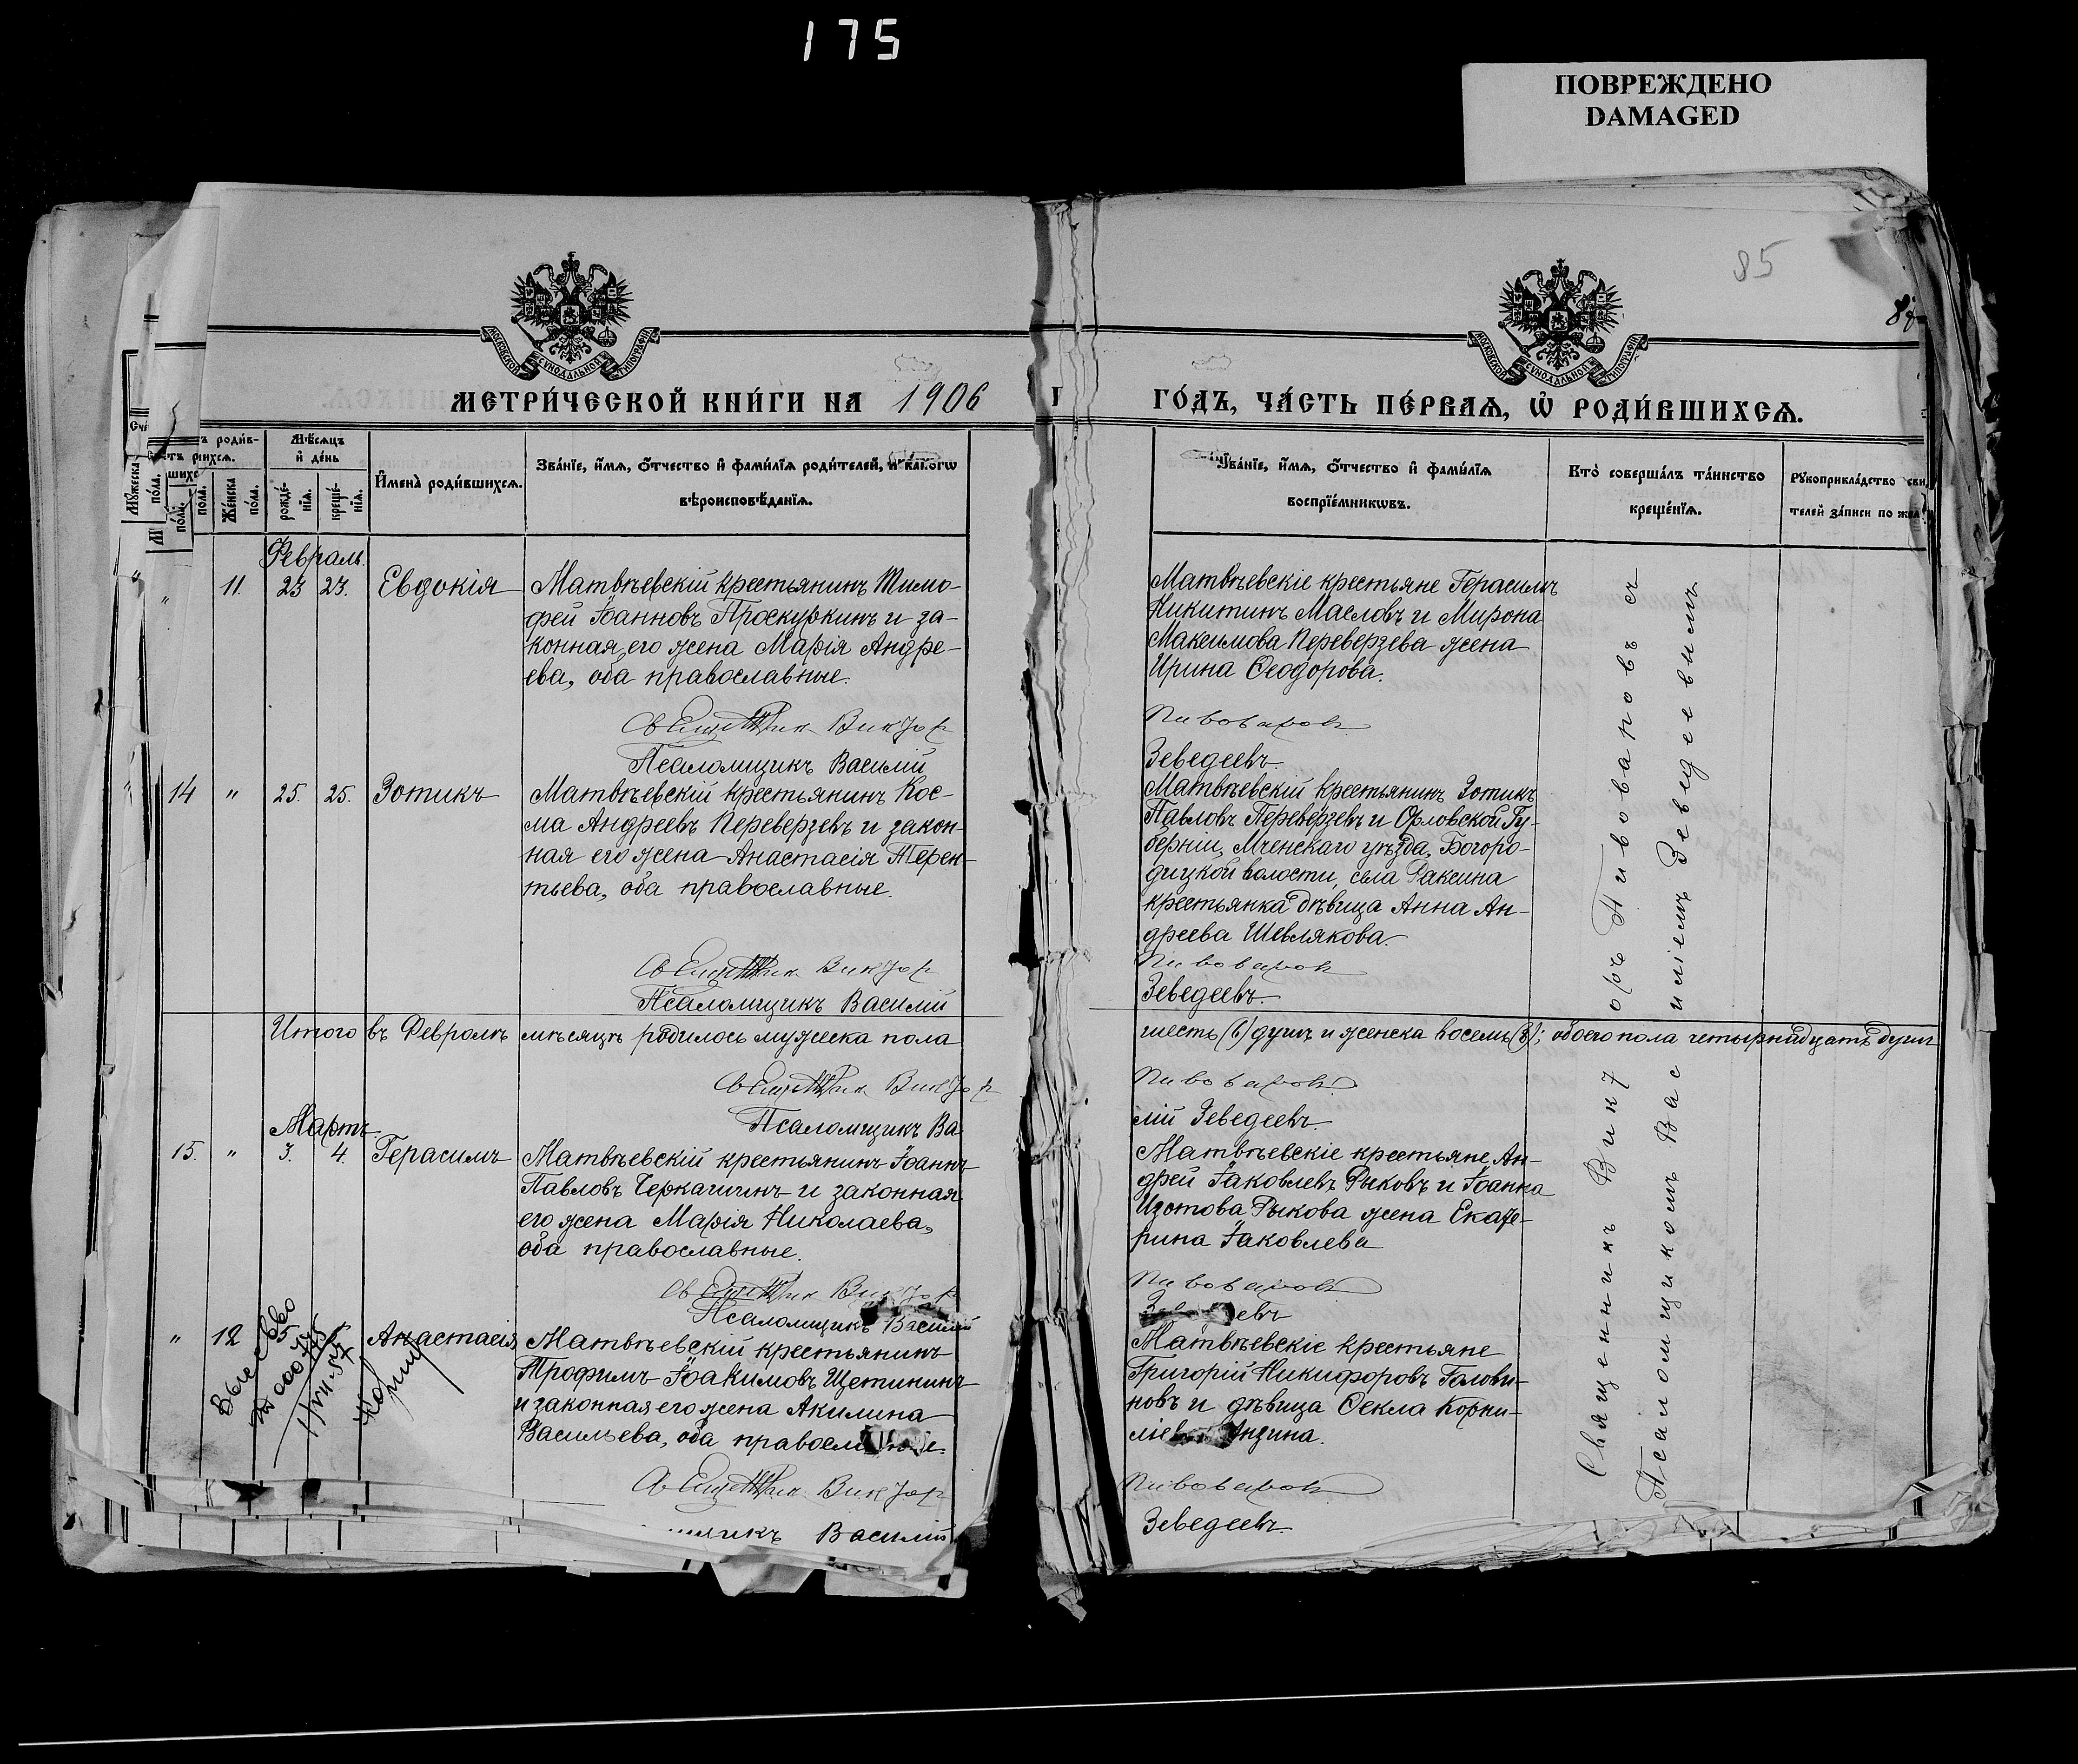 175
ПОВРЕЖДЕНО
DAMAGED
85
МОСКОВСКОЙ СУНОДАЛЬНОЙ ТИПОГРАФІИ
МОСКОВСКОЙ СУНОДАЛЬНОЙ ТИПОГРАФІИ
МЕТРИ́ЧЕСКОЙ КНИ́ГИ НА 1906
ГО́ДЪ, ЧА́СТЬ ПЕ́РВАѦ, Ѡ РОДИ́ВШИХСѦ.
Мѣ́сѧцъ и де́нь
рожде́нїѧ.
креще́нїѧ.
Му́жеска по́ла.
Же́нска по́ла.
Имена̀ роди́вшихсѧ.
Зва́нїе, и́мѧ, ѻ́тчество и фами́лїѧ роди́телей, и како́гѡ
вѣроисповѣ́данїѧ.
Зва́нїе, и́мѧ, ѻ́тчество и фами́лїѧ
воспрїе́мникѡвъ.
Кто̀ соверша́лъ та́инство
креще́нїѧ.
Рукоприкла́дство сви
телей за́писи по жел
Февраль.
11. 23 23. Евдокія
Матвѣевскій крестьянинъ Тимо-
фей Іоанновъ Проскуркинъ и за-
конная его жена Марія Андре-
ева, оба православные.
Священникъ Викторъ
Псаломщикъ Василій
Матвѣевскіе крестьяне Герасимъ
Никитинъ Масловъ и Мирона
Максимова Переверзева жена
Ирина Ѳеодорова.
Пивоваровъ
Зеведеевъ.
14 " 25. 25. Зотикъ
Матвѣевскій крестьянинъ Кос-
ма Андреевъ Переверзевъ и закон-
ная его жена Анастасія Терен-
тьева, оба православные.
Священникъ Викторъ
Псаломщикъ Василій
Матвѣевскій крестьянинъ Зотикъ
Павловъ Переверзевъ и Орловской Гу-
берніи, Мценскаго уѣзда, Богоро-
дицкой волости, села Ракзина
крестьянка дѣвица Анна Ан-
дреева Шевлякова.
Пивоваровъ
Зеведеевъ.
Итого въ Февралѣ мѣсяцѣ родилось мужеска пола
шесть (6) душъ и женска восемь (8); обоего пола четырнадцать душъ
Священникъ Викторъ
Псаломщикъ Ва
Пивоваровъ
лій Зеведеевъ.
Мартъ.
15. " 3. 4. Герасимъ
Матвѣевскій крестьянинъ Іоаннъ
Павловъ Черкашинъ и законная
его жена Марія Николаева,
оба православные.
Священникъ Викторъ
Псаломщикъ Василій
Матвѣевскіе крестьяне Ан-
дрей Іаковлевъ Рыковъ и Іоанна
Изотова Рыкова жена Екате-
рина Іаковлева
Пивоваровъ
евъ
" 12 Анастасія
Матвѣевскій крестьянинъ
Трофимъ Іоакимовъ Щетининъ
и законная его жена Акилина
Васильева, оба православные.
Священникъ Викторъ
щикъ Василій
Матвѣевскіе крестьяне
Григорій Никифоровъ Голови-
новъ и дѣвица Ѳекла Корни-
Пивоваровъ
Зеведеевъ.
Священникъ Викторъ Пивоваровъ съ
Псаломщикомъ Василіемъ Зеведеевымъ